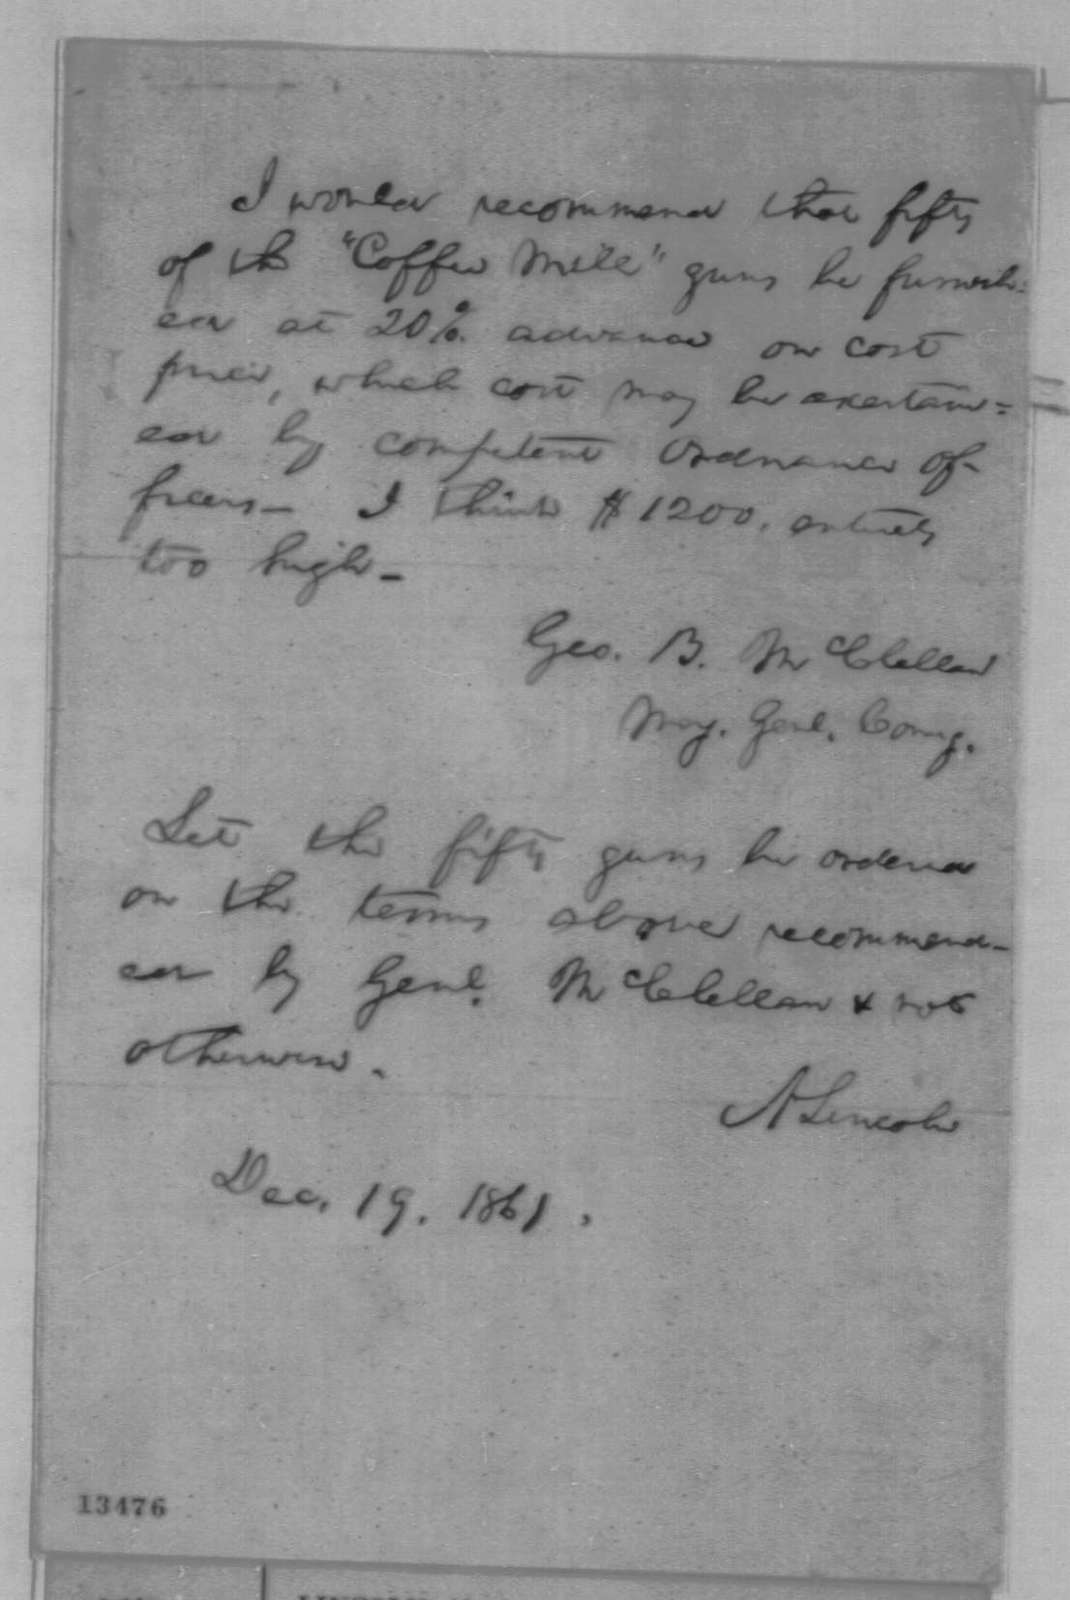 I would recommend that fifty
of the "Coffee Mill" guns be furnish=
ed at 20%. advance on cost
price, which cost may be ascertain=
ed by competent Ordnance of-
ficers— I think $1200. entirely
too high—
Geo. B. McClellan
Maj. Genl. Comg.
Let the fifty guns be ordered
on the terms above recommend-
ed by Genl. McClellan & not
otherwise.
A Lincoln
Dec. 19. 1861.
13476